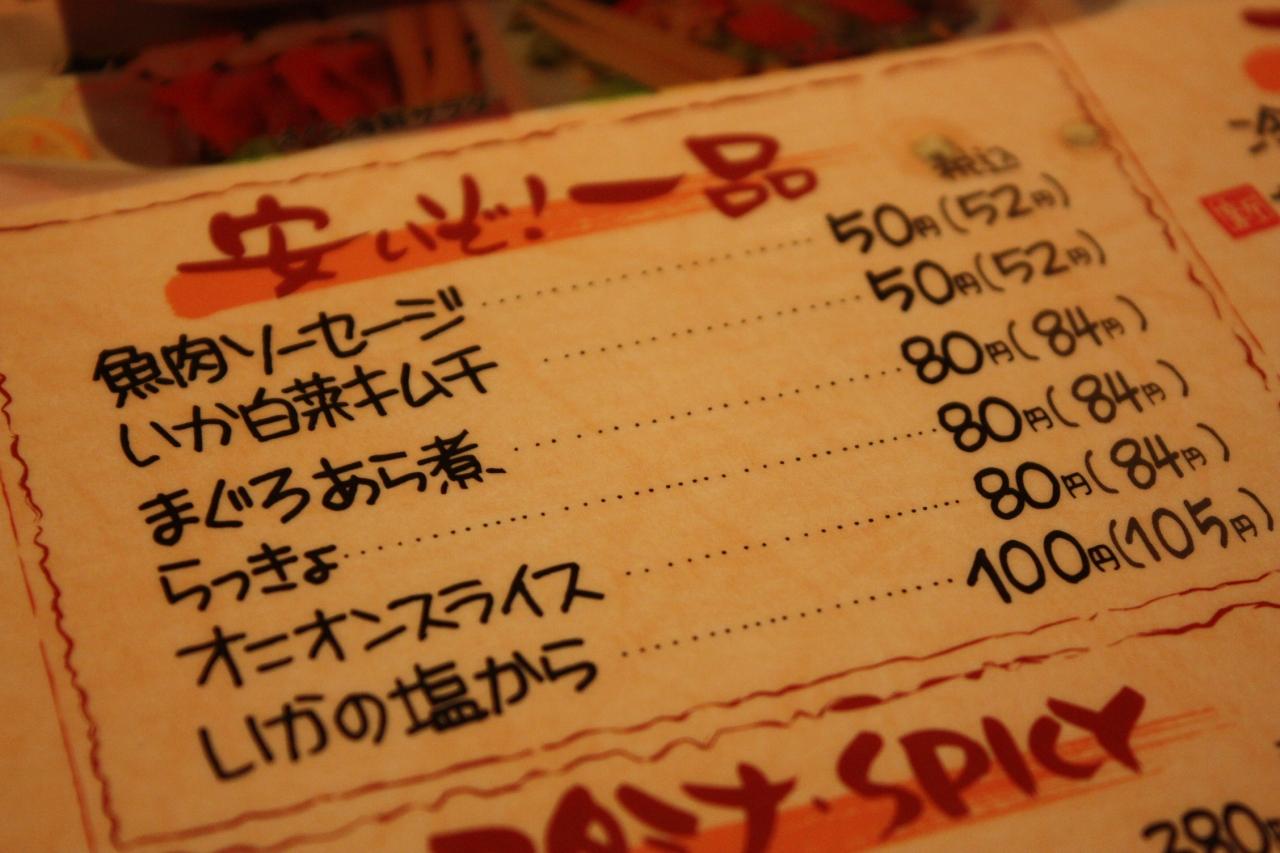 安いぞ!一品
税込
魚肉ソーセージ 50円(52円)
いか白菜キムチ 50円(52円)
まぐろあら煮 80円(84円)
らっきょ 80円(84円)
オニオンスライス 80円(84円)
いかの塩から 100円(105円)
SPICY
380円